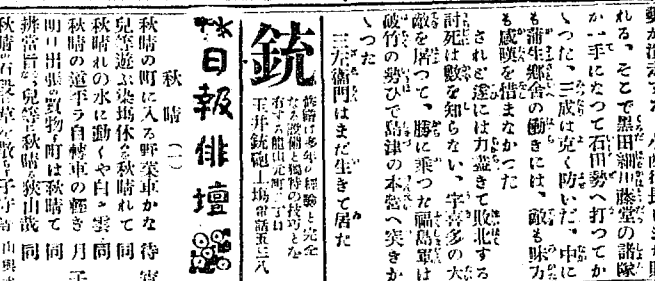 れる、そこで黒田細川藤堂の諸隊
か一手になつて石田勢へ打つてか
ゝつた、三成は克く防いだ、中に
も蒲生郷舎の働きには、敵も味方
も感嘆を惜まなかつた
されど遂には力盡きて敗北する
討死は數を知らない、宇喜多の大
敵を屠つて、勝に乗つた福島軍は
破竹の勢ひで島津の本營へ突きか
ゝつた
三左衛門はまだ生きて居た
銃
修繕は多年の經驗と完全
なる設備と獨特の技巧とを
有する龍山元町二丁目
玉井銃砲工場 電話五三八
日報俳壇
秋晴(一)
秋晴の町に入る野菜車かな 待宵
兒等遊ぶ染塲休み秋晴れて 同
秋晴れの水に動くや白き雲 同
秋晴の道平ラ自轉車の輕き 月子
明日出張の買物や町は秋晴て 同
辨當旨き兒等に秋晴る狹山哉 同